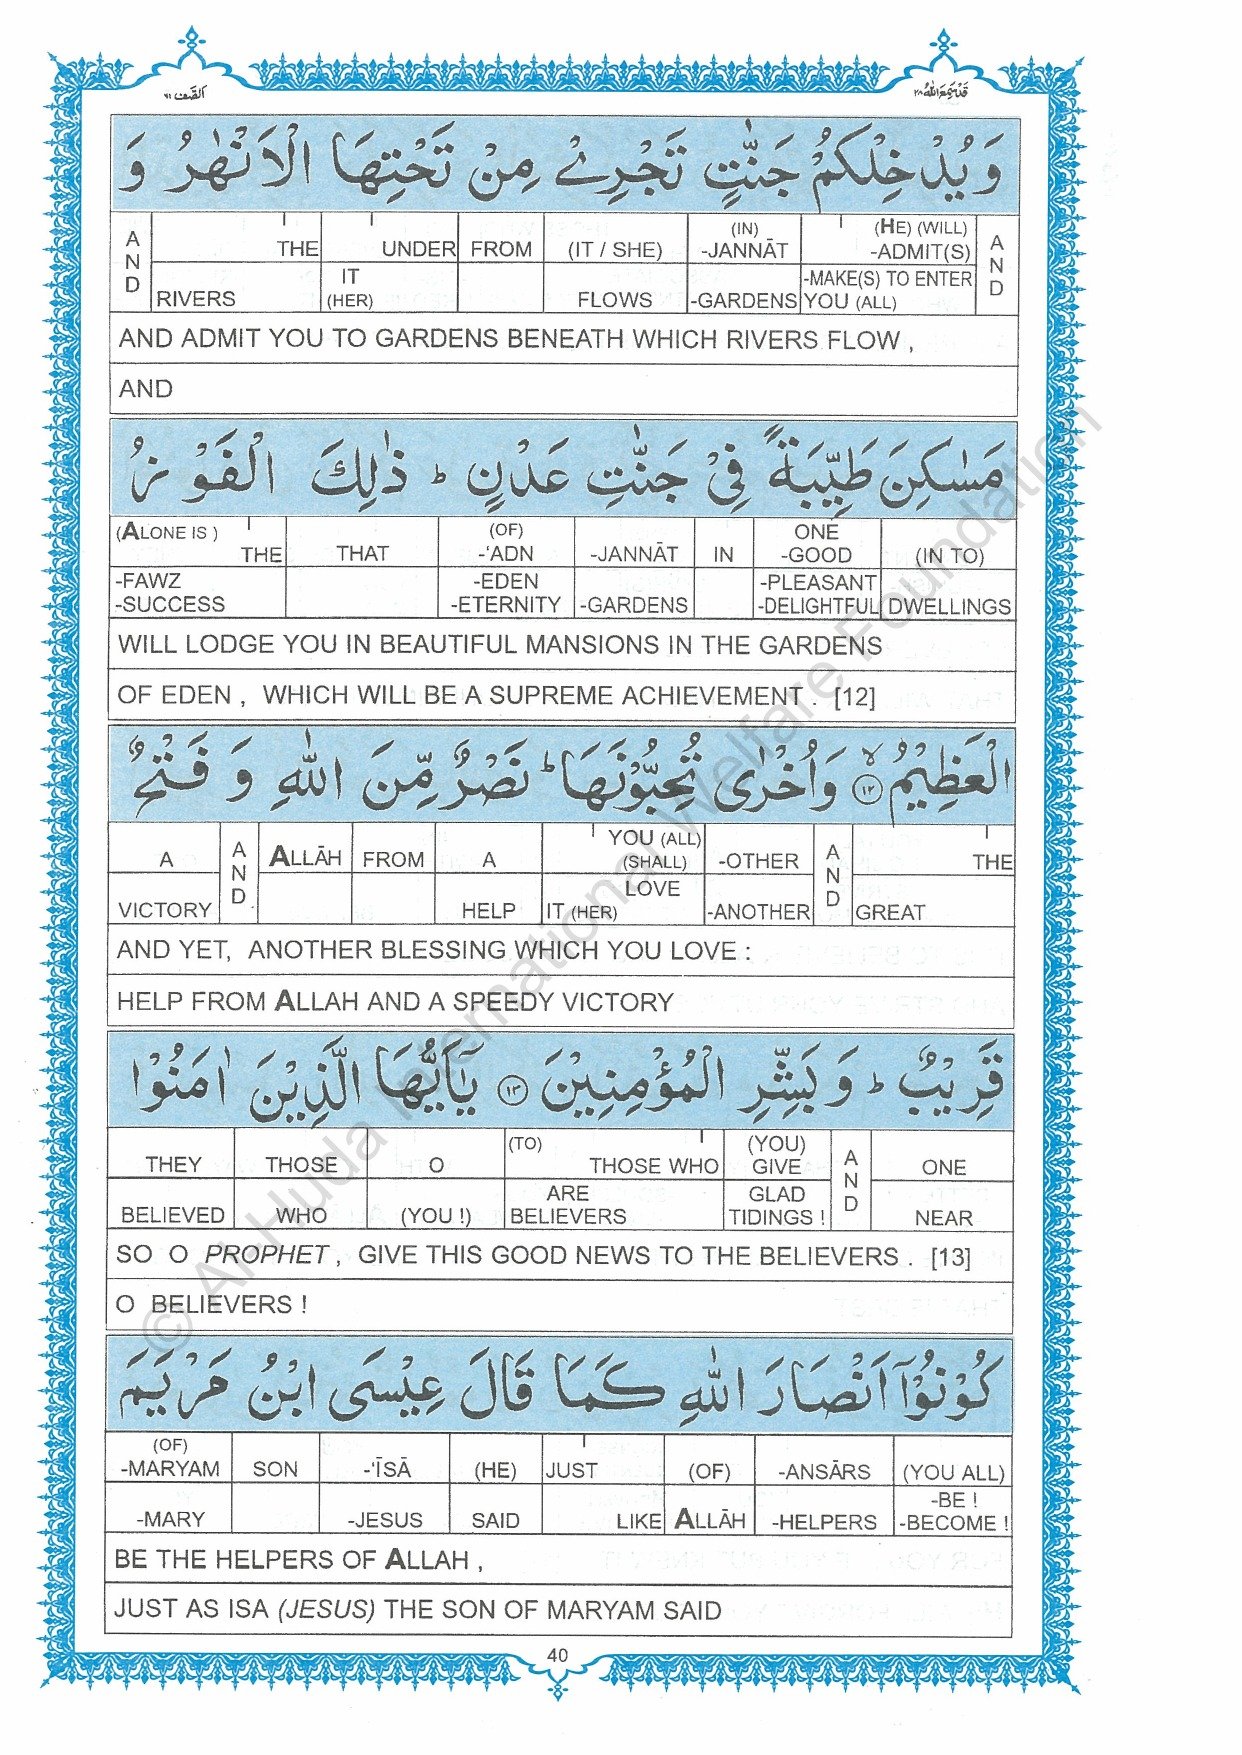 الصّف ٦١
قد سمع الله ٢٨
وَيُدْخِلْكُمْ جَنّٰتٍ تَجْرِيْ مِنْ تَحْتِهَا الْاَنْهٰرُ وَ
AND THE UNDER FROM (IT / SHE) (IN) -JANNĀT (HE) (WILL) -ADMIT(S) AND
RIVERS IT (HER) FLOWS -GARDENS -MAKE(S) TO ENTER YOU (ALL)
AND ADMIT YOU TO GARDENS BENEATH WHICH RIVERS FLOW ,
AND
مَسٰكِنَ طَيِّبَةً فِيْ جَنّٰتِ عَدْنٍ ؕ ذٰلِكَ الْفَوْزُ
(ALONE IS ) THE THAT (OF) -'ADN -JANNĀT IN ONE -GOOD (IN TO)
-FAWZ -SUCCESS -EDEN -ETERNITY -GARDENS -PLEASANT -DELIGHTFUL DWELLINGS
WILL LODGE YOU IN BEAUTIFUL MANSIONS IN THE GARDENS
OF EDEN , WHICH WILL BE A SUPREME ACHIEVEMENT . [12]
الْعَظِيْمُ ۙ ١٢ وَاُخْرٰى تُحِبُّوْنَهَا ؕ نَصْرٌ مِّنَ اللّٰهِ وَ فَتْحٌ
A AND ALLĀH FROM A YOU (ALL) (SHALL) -OTHER AND THE
VICTORY HELP LOVE IT (HER) -ANOTHER GREAT
AND YET, ANOTHER BLESSING WHICH YOU LOVE :
HELP FROM ALLAH AND A SPEEDY VICTORY
قَرِيْبٌ ؕ وَ بَشِّرِ الْمُؤْمِنِيْنَ ١٣ يٰۤاَيُّهَا الَّذِيْنَ اٰمَنُوْا
THEY THOSE O (TO) THOSE WHO (YOU) GIVE AND ONE
BELIEVED WHO (YOU !) ARE BELIEVERS GLAD TIDINGS ! NEAR
SO O PROPHET , GIVE THIS GOOD NEWS TO THE BELIEVERS . [13]
O BELIEVERS !
كُوْنُوْۤا اَنْصَارَ اللّٰهِ كَمَا قَالَ عِيْسَى ابْنُ مَرْيَمَ
(OF) -MARYAM SON -'ĪSĀ (HE) JUST (OF) -ANSĀRS (YOU ALL)
-MARY -JESUS SAID LIKE ALLĀH -HELPERS -BE ! -BECOME !
BE THE HELPERS OF ALLAH ,
JUST AS ISA (JESUS) THE SON OF MARYAM SAID
40
© Al-Huda International Welfare Foundation